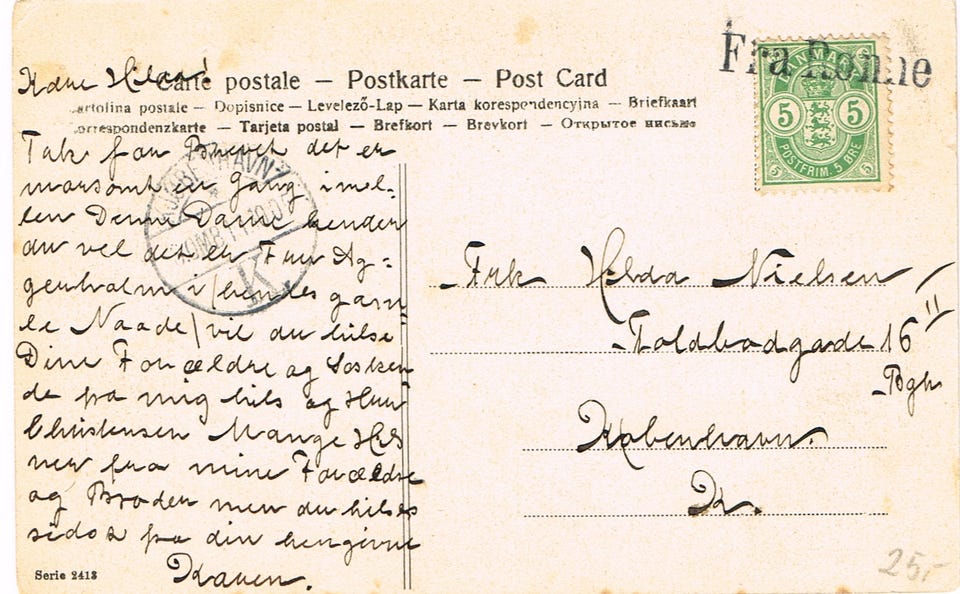 Fra Rønne
DANMARK
5 5
POSTFRIM. 5 ØRE
Carte postale — Postkarte — Post Card
Cartolina postale — Dopisnice — Levelező-Lap — Karta korespondencyjna — Briefkaart
Correspondenzkarte — Tarjeta postal — Brefkort — Brevkort — Открытое письмо
KJØBENHAVN
K.
Kære
Tak for Brevet det er
morsomt en Gang imel-
len Denne Dame kender
du vel det er Fru Ag-
gerholm i hendes gam
le Naade vil du hilse
Dine Forældre og Søsken
de fra mig hils og Herr
Christensen Mange Hils
ner fra mine Forældre
og Broder men du hilses
sidst fra din hengivne
Karen.
Frk Hilda Nielsen
Toldbodgade 16
Bgh
København.
K.
Serie 2413
25,-